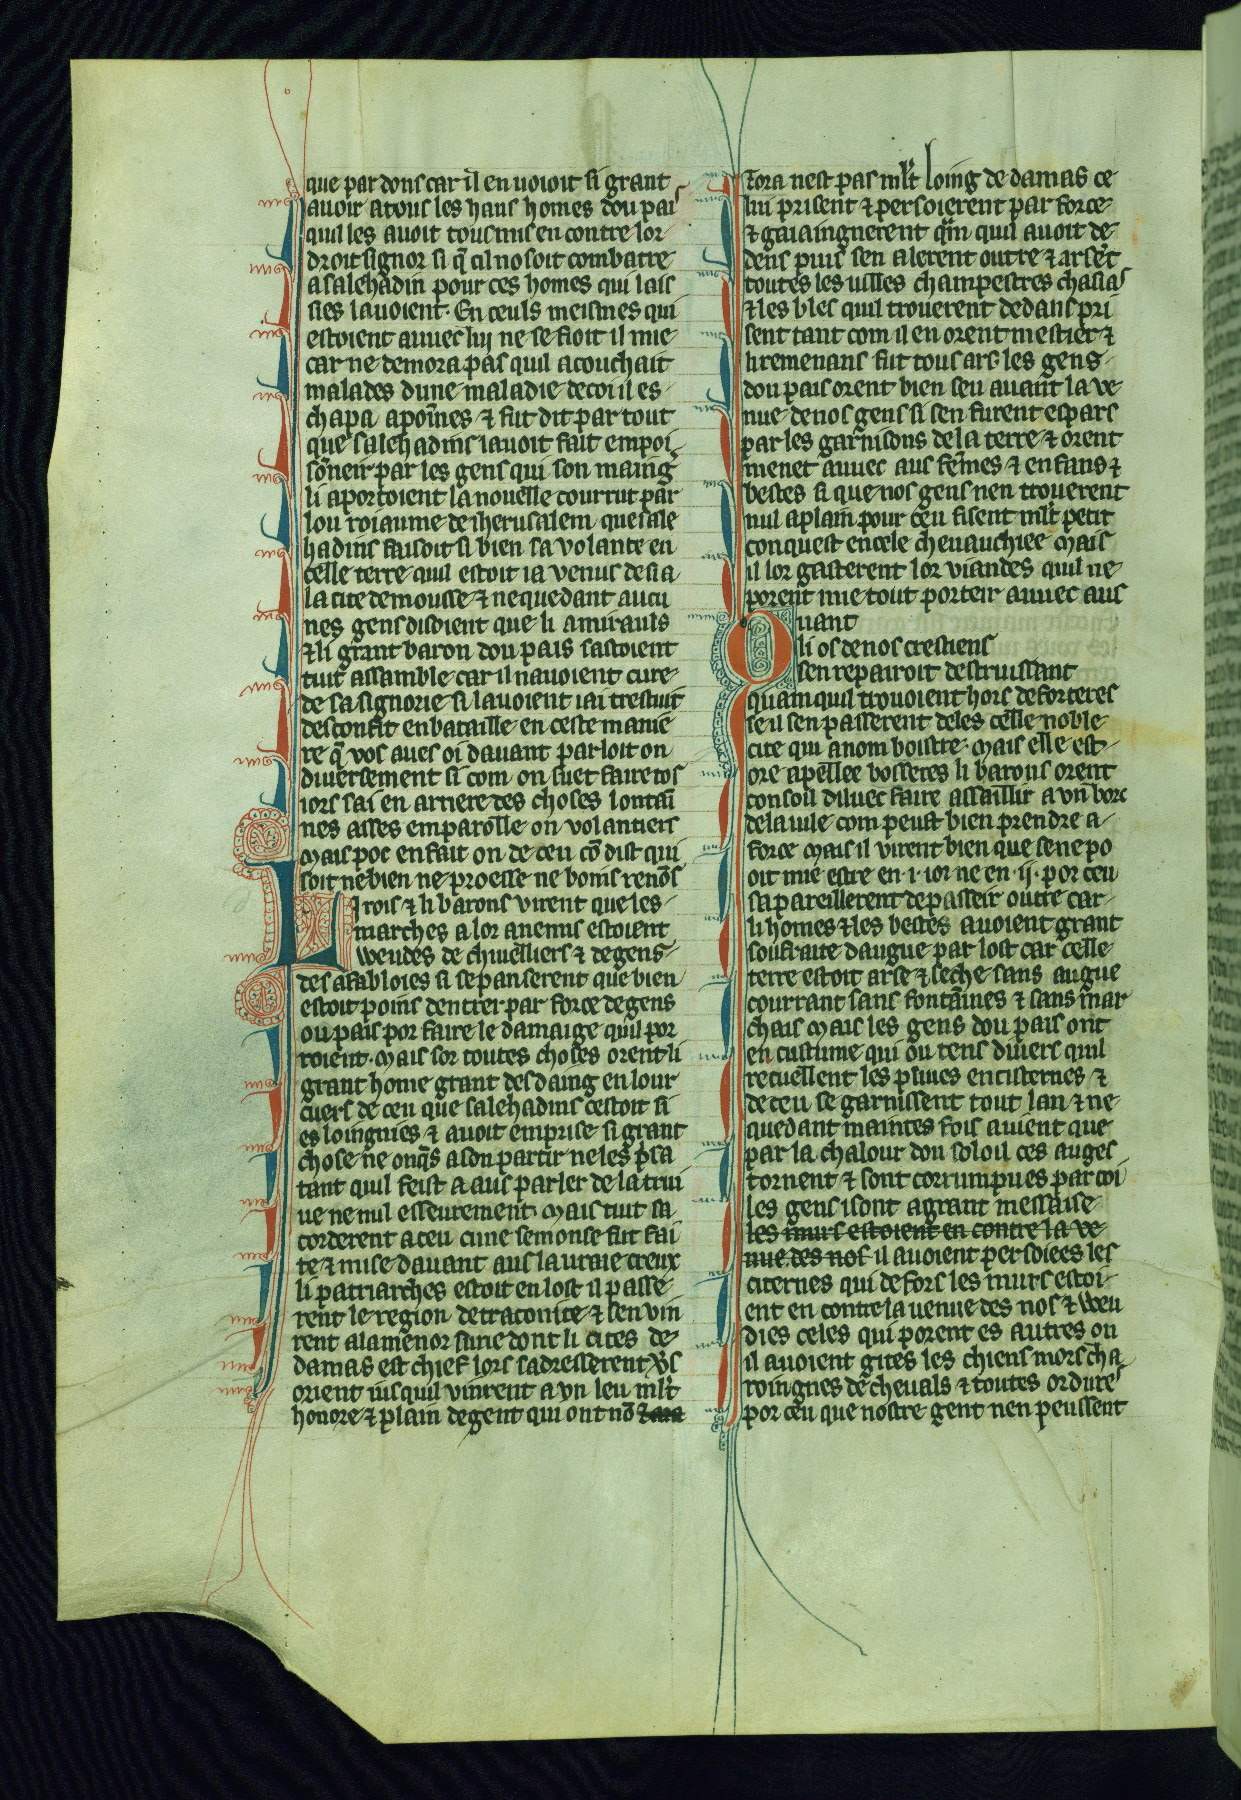 que par dons car il en uoioit si grant
auoir a tous les haus homes dou pais
quil les auoit tous mis en contre lor
droit signor si q̃ cil nosoit combatre
a salehadin pour ces homes qui lais
sies lauoient. En ceuls meismes qui
estoient auuec luj ne se fioit il mie
car ne demora pas quil acouchait
malades dune maladie de coi il es
chapa a poĩnes ⁊ fut dit par tout
que salehadins lauoit fait empoi
sõneir par les gens qui son maing
li aportoient la nouelle courrut par
lou roiaume de jherusalem que sale
hadins faisoit si bien sa volante en
celle terre quil estoit ia venus desi a
la cite de mousse ⁊ nequedant aucu
nes gens disoient que li amirauls
⁊ li grant baron dou pais sastoient
tuit assamble car il nauoient cure
de sa signorie si lauoient iai trestuit
desconfit en bataille en ceste manie
re q̃ vos aues oi dauant parloit on
diuersement si com on suet faire tos
iors sai en arriere des choses lontaĩ
nes asses emparolle on volantiers
Mais poc en fait on de ceu cõ dist qui
soit ne bien ne proesse ne boins renõs
Li rois ⁊ li barons virent que les
marches a lor anemis estoient
weudes de chiuelliers ⁊ de gens
desafabloies si se panserent que bien
estoit poins dentrer par force de gens
ou pais por faire le damaige quil por
roient. Mais sor toutes choses orent li
grant home grant desdaing en lour
cuers de ceu que salehadins cestoit si
esloingnies ⁊ auoit emprise si grant
chose ne onq̃s a son partir ne les p̃sa
tant quil feist a aus parler de la triu
ue ne nul esseurement. Mais tuit sa
corderent a ceu cune semonse fut fai
te ⁊ mise dauant aus la uraie creux
li patriarches estoit en lost il passe
rent le region de traconite ⁊ sen vin
rent a la menor surie dont li cites de
damas est chief lors sadresserent v̾s
orient iusquil vinrent a vn leu ml't
honore ⁊ plain de gent qui ont nõ
zora nest pas ml't loing de damas ce
lui prisent ⁊ persoierent par force
⁊ gaiaingnerent q̃n quil auoit de
dens puis sen alerent outre ⁊ arsẽt
toutes les uilles champestres chasias
⁊ les bles quil trouerent dedans pri
sent tant com il en orent mestier ⁊
li remenans fut tous ars les gens
dou pais orent bien seu auant la ve
nue de nos gens si sen furent espars
par les garnisons de la terre ⁊ orent
menet auuec aus femes ⁊ enfans ⁊
bestes si que nos gens nen trouerent
nul a plain pour ceu fisent ml't petit
conquest en cele cheuauchiee Mais
il lor gasterent lor viandes quil ne
porent mie tout porteir auuec aus
Quant
li os de nos crestiens
sen repairoit destruissant
quamquil trouoient hors de forteres
se il sen passerent deles celle noble
cite qui a nom boistre. Mais elle est
ore apellee bosseres li barons orent
consoil diluec faire assaillir a vn borc
de la uile com peust bien prendre a
force Mais il virent bien que se ne po
oit mie estre en .i. ior ne en .ij. por ceu
sapareillerent de passeir outre car
li homes ⁊ les bestes auoient grant
soufraite daugue par lost car celle
terre estoit arse ⁊ seche sans augue
courrant sans fontaines ⁊ sans mar
chais Mais les gens dou pais ont
en custume qui ou tens diuers quil
recuellent les pluies en cisternes ⁊
de ceu se garnissent tout lan ⁊ ne
quedant maintes fois auient que
par la chalour dou soloil ces augues
tornent ⁊ sont corrumpues par coi
les gens i sont a grant messaise
les murs estoient en contre la ve
nue des nos il auoient persoiees les
citernes qui defors les murs estoi
ent en contre la uenue des nos ⁊ weu
dies celes qui porent es autres ou
il auoient gites les chiens mors cha
roingnes de cheuals ⁊ toutes ordures
por ceu que nostre gent nen peussent